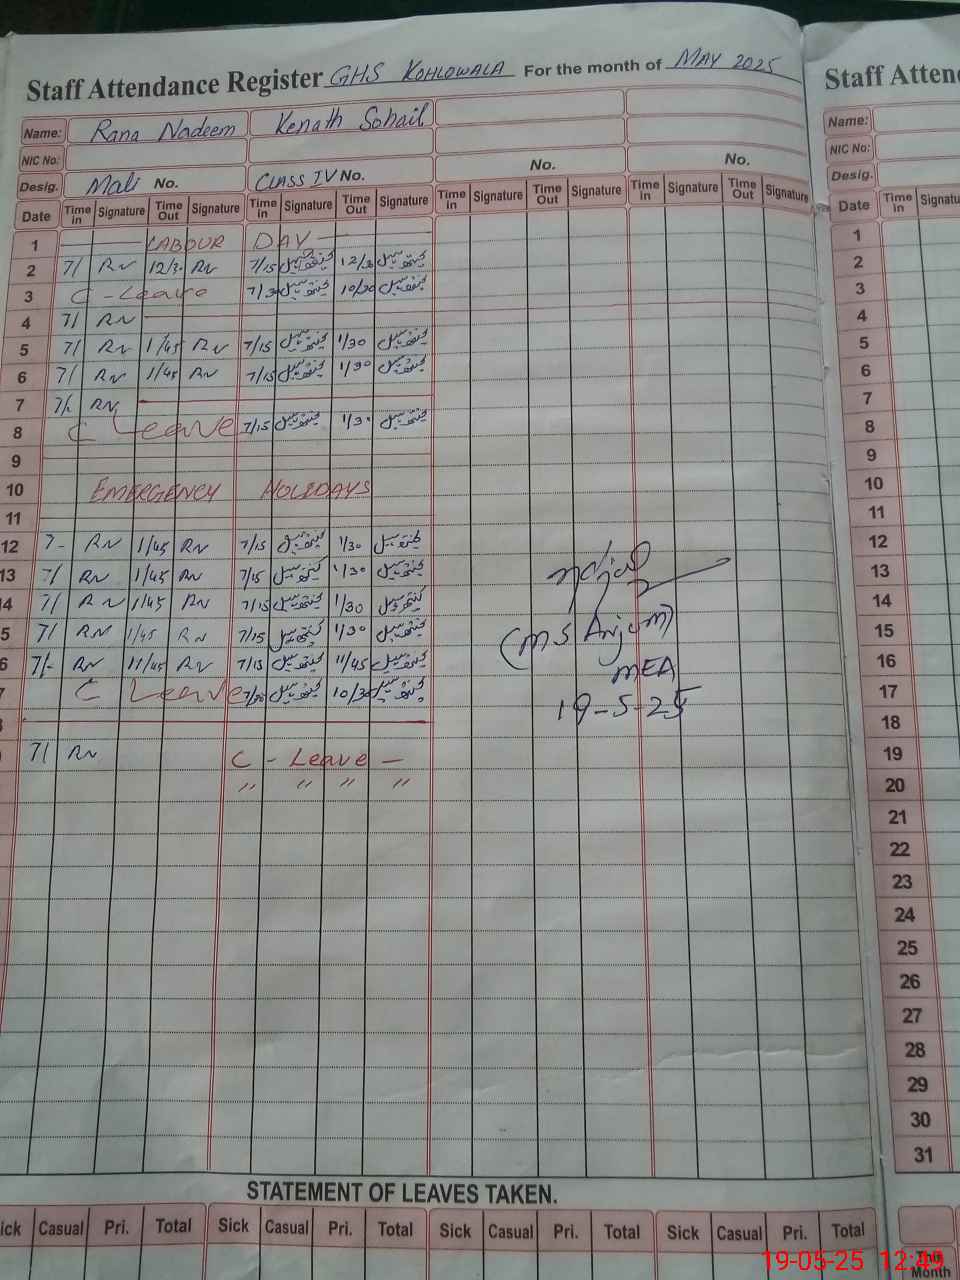 Staff Attendance Register GHS KOHLOWALA For the month of MAY 2025 Staff Atten
Name: Rana Nadeem Kenath Sohail Name:
NIC No: NIC No:
Desig. Mali No. CLASS IV No. No. No. Desig.
Date Time in Signature Time Out Signature Time in Signature Time Out Signature Time in Signature Time Out Signature Time in Signature Time Out Signature Date Time in Signatu
1 LABOUR DAY 1
2 7/ RN 12/3. RN 7/15 کینتھ سہیل 12/30 کینتھ سہیل 2
3 C - Leave 7/30 کینتھ سہیل 10/30 کینتھ سہیل 3
4 7/ RN 4
5 7/ RN 1/45 RN 7/15 کینتھ سہیل 1/30 کینتھ سہیل 5
6 7/ RN 1/45 RN 7/15 کینتھ سہیل 1/30 کینتھ سہیل 6
7 7/. RN 7
8 C Leave 7/15 کینتھ سہیل 1/30 کینتھ سہیل 8
9 9
10 EMERGENCY HOLIDAYS 10
11 11
12 7- RN 1/45 RN 7/15 کینتھ سہیل 1/30 کینتھ سہیل 12
13 7/ RN 1/45 RN 7/15 کینتھ سہیل 1/30 کینتھ سہیل 13
4 7/ RN 1/45 RN 7/15 کینتھ سہیل 1/30 کینتھ سہیل 14
5 7/ RN 1/45 RN 7/15 کینتھ سہیل 1/30 کینتھ سہیل (MS Anjum) 15
6 7/- RN 11/45 RN 7/15 کینتھ سہیل 11/45 کینتھ سہیل MEA 16
7 C Leave 7/30 کینتھ سہیل 10/30 کینتھ سہیل 19-5-25 17
18
7/ RN C - Leave - 19
" " " " 20
21
22
23
24
25
26
27
28
29
30
31
STATEMENT OF LEAVES TAKEN.
ick Casual Pri. Total Sick Casual Pri. Total Sick Casual Pri. Total Sick Casual Pri. Total
This Month
19-05-25 12:49